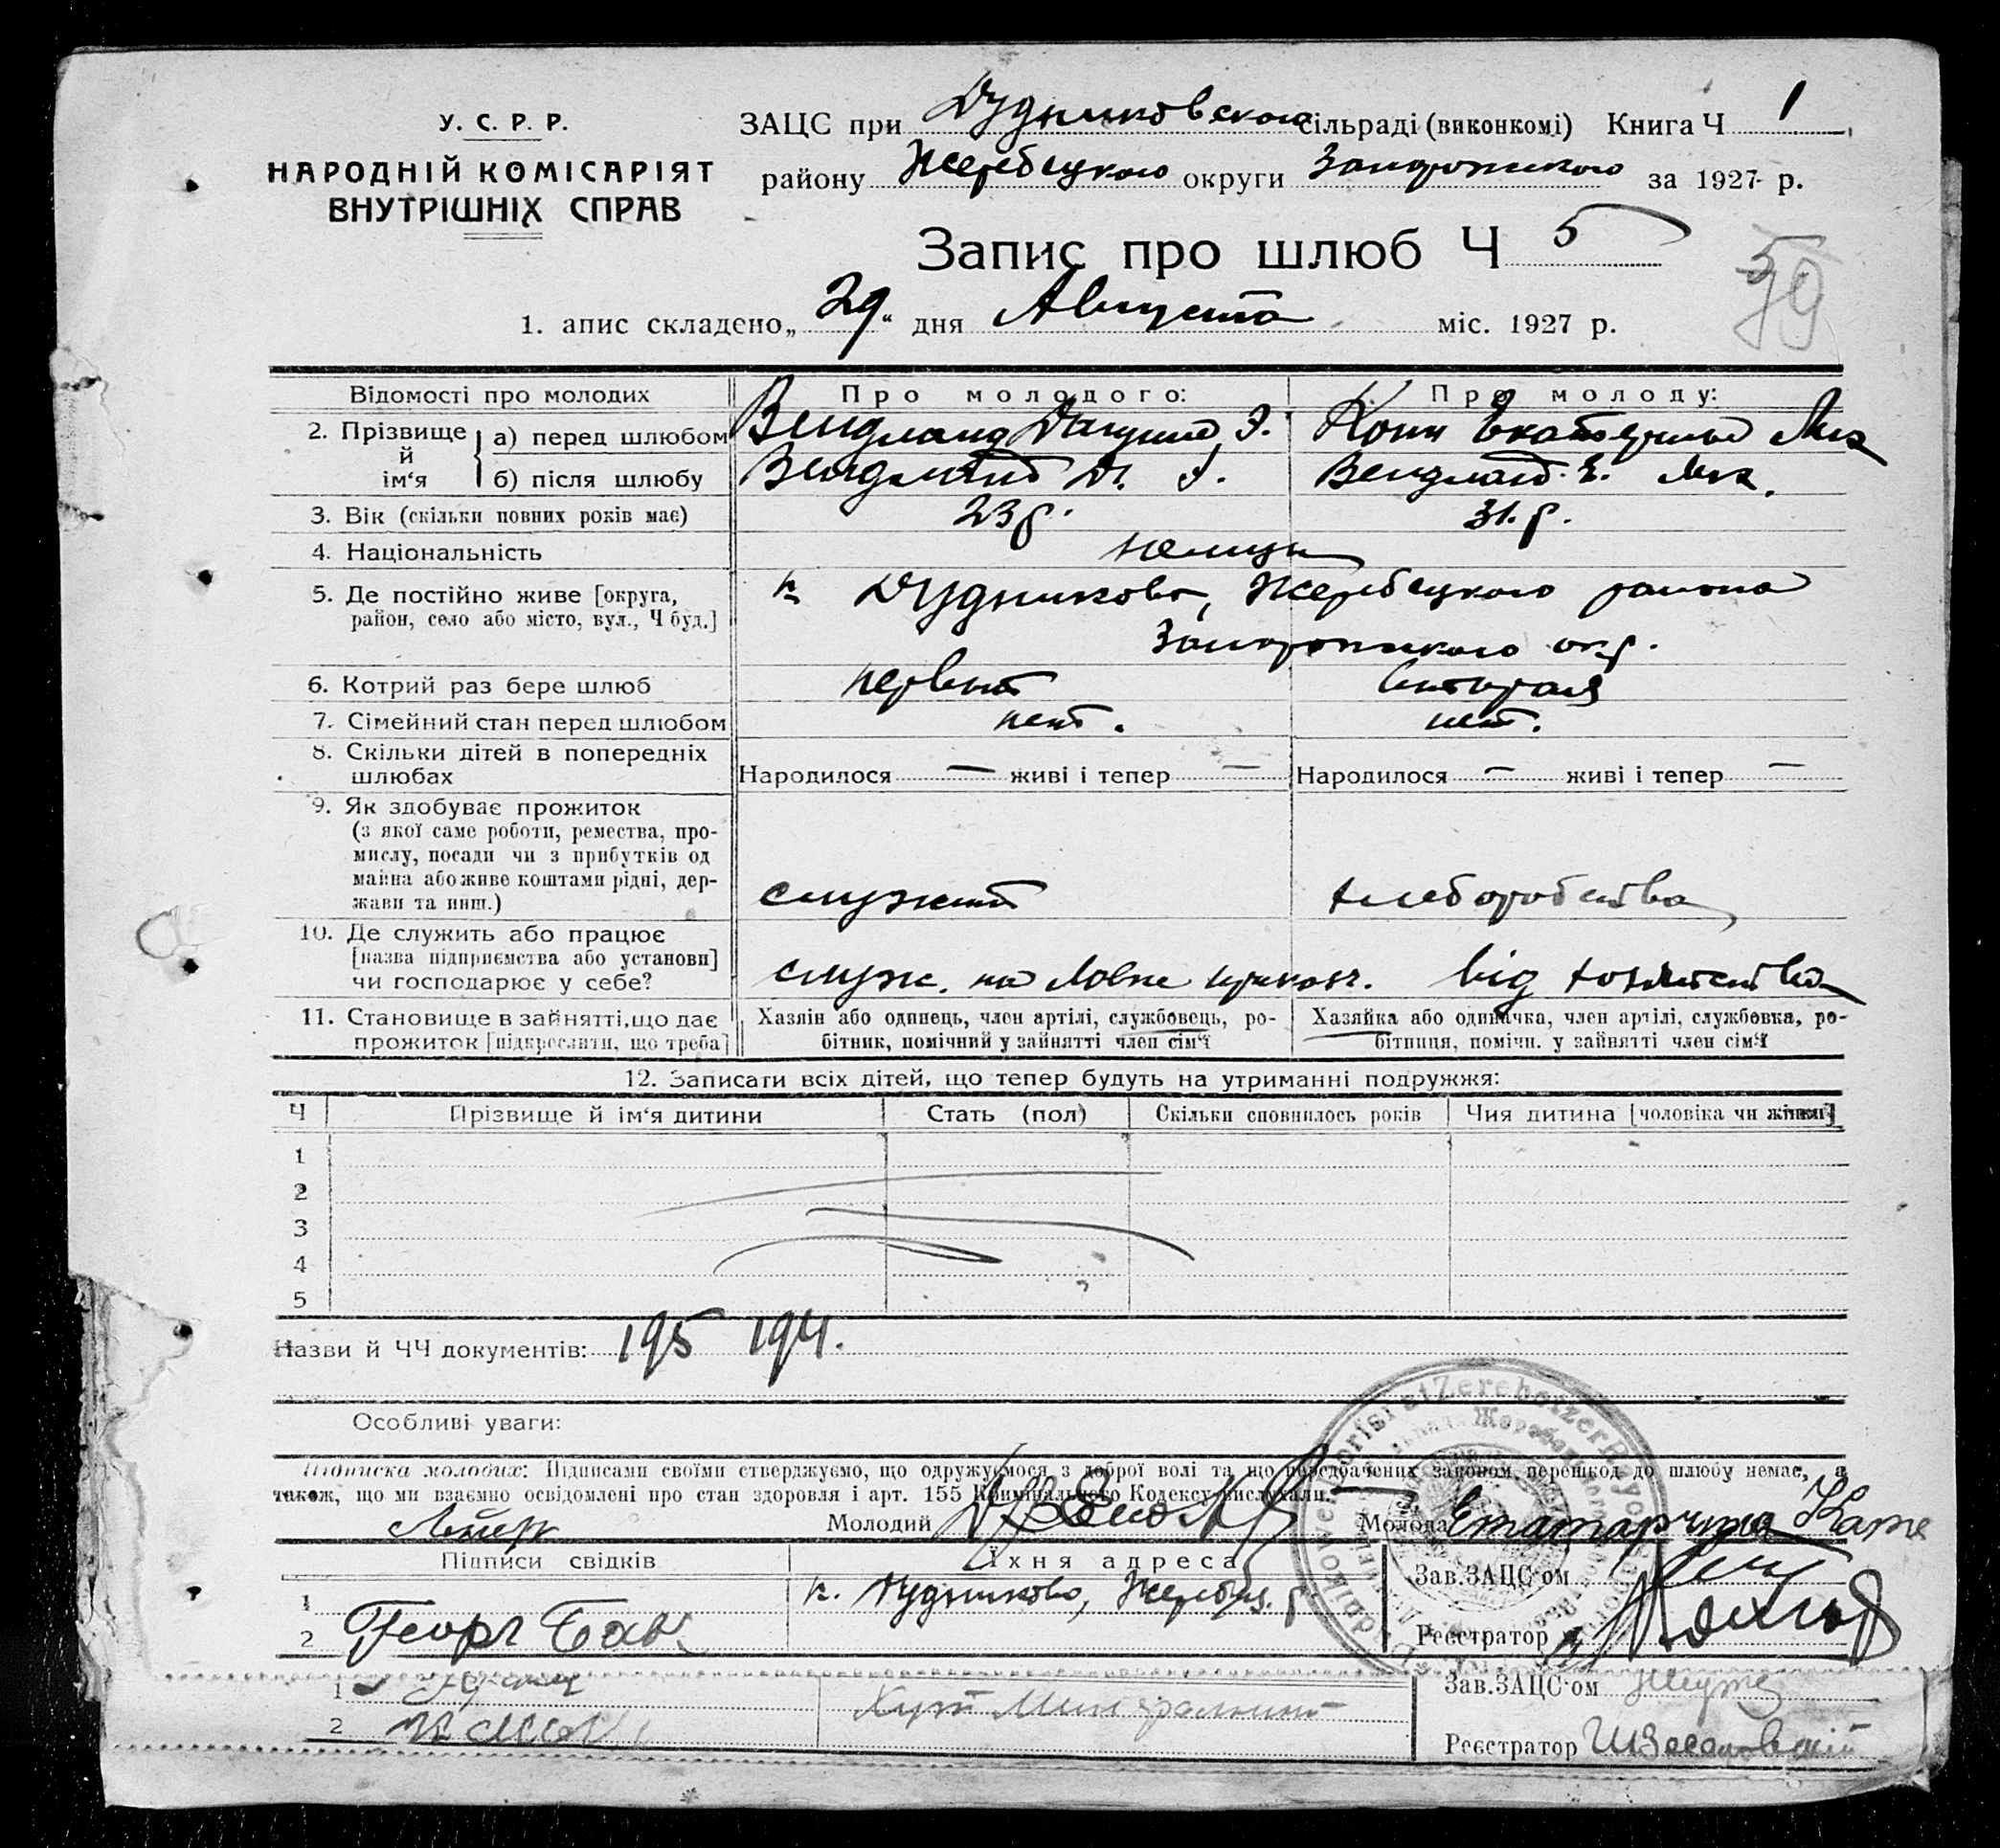 У. С. Р. Р.
НАРОДНІЙ КОМІСАРІЯТ
ВНУТРІШНІХ СПРАВ
ЗАЦС при Дудниковской сільраді (виконкомі) Книга Ч 1
району Жеребецкого округи Запорожского за 1927 р.
Запис про шлюб Ч 5
59
1. апис складено „29“ дня Августа міс. 1927 р.
Відомості про молодих Про молодого: Про молоду:
2. Прізвище й ім‘я а) перед шлюбом Вендланд Э. Конн Екатерина
б) після шлюбу Вендланд Д. Э. Вендланд Е.
3. Вік (скільки повних років має) 23 г. 31. г.
4. Національність немцы
5. Де постійно живе [округа, район, село або місто, вул., Ч буд.] к. Дудниково, Жеребецкого района
Запорожского окр.
6. Котрий раз бере шлюб первый вторая
7. Сімейний стан перед шлюбом нет. нет.
8. Скільки дітей в попередніх шлюбах Народилося — живі і тепер — Народилося — живі і тепер —
9. Як здобуває прожиток
(з якої саме роботи, ремества, про-
мислу, посади чи з прибутків од
майна або живе коштами рідні, дер-
жави та инш.) служит хлеборобства
10. Де служить або працює
[назва підприємства або установи]
чи господарює у себе? служ. на від хозяйства
11. Становище в зайнятті, що дає
прожиток [підкреслити, що треба]
Хазяін або одинець, член артілі, службовець, ро-
бітник, помічний у зайнятті член сім‘ї
Хазяйка або одиначка, член артілі, службовка, ро-
бітниця, помічн. у зайнятті член сім‘ї
12. Записати всіх дітей, що тепер будуть на утриманні подружжя:
Ч Прізвище й ім‘я дитини Стать (пол) Скільки сповнилось років Чия дитина [чоловіка чи жінки]
1
2
3
4
5
Назви й ЧЧ документів: 195 194.
Особливі уваги:
Підписка молодих: Підписами своїми стверджуємо, що одружуємося з доброї волі та що передбачених законом перешкод до шлюбу немає, а
також, що ми взаємно освідомлені про стан здоровля і арт. 155 Криминального Кодексу вислухали.
Молодий Молода
Підписи свідків Їхня адреса Зав. ЗАЦС‘ом
1 к. Дудниково, Жеребец. р.
2 Георг Реєстратор
1 Хут Зав. ЗАЦС‘ом
2 Реєстратор